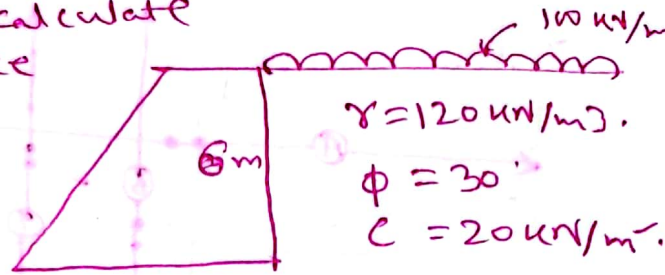 calculate
100 kN/m
γ=120 kN/m3.
6m
φ = 30°
C = 20 kN/m².